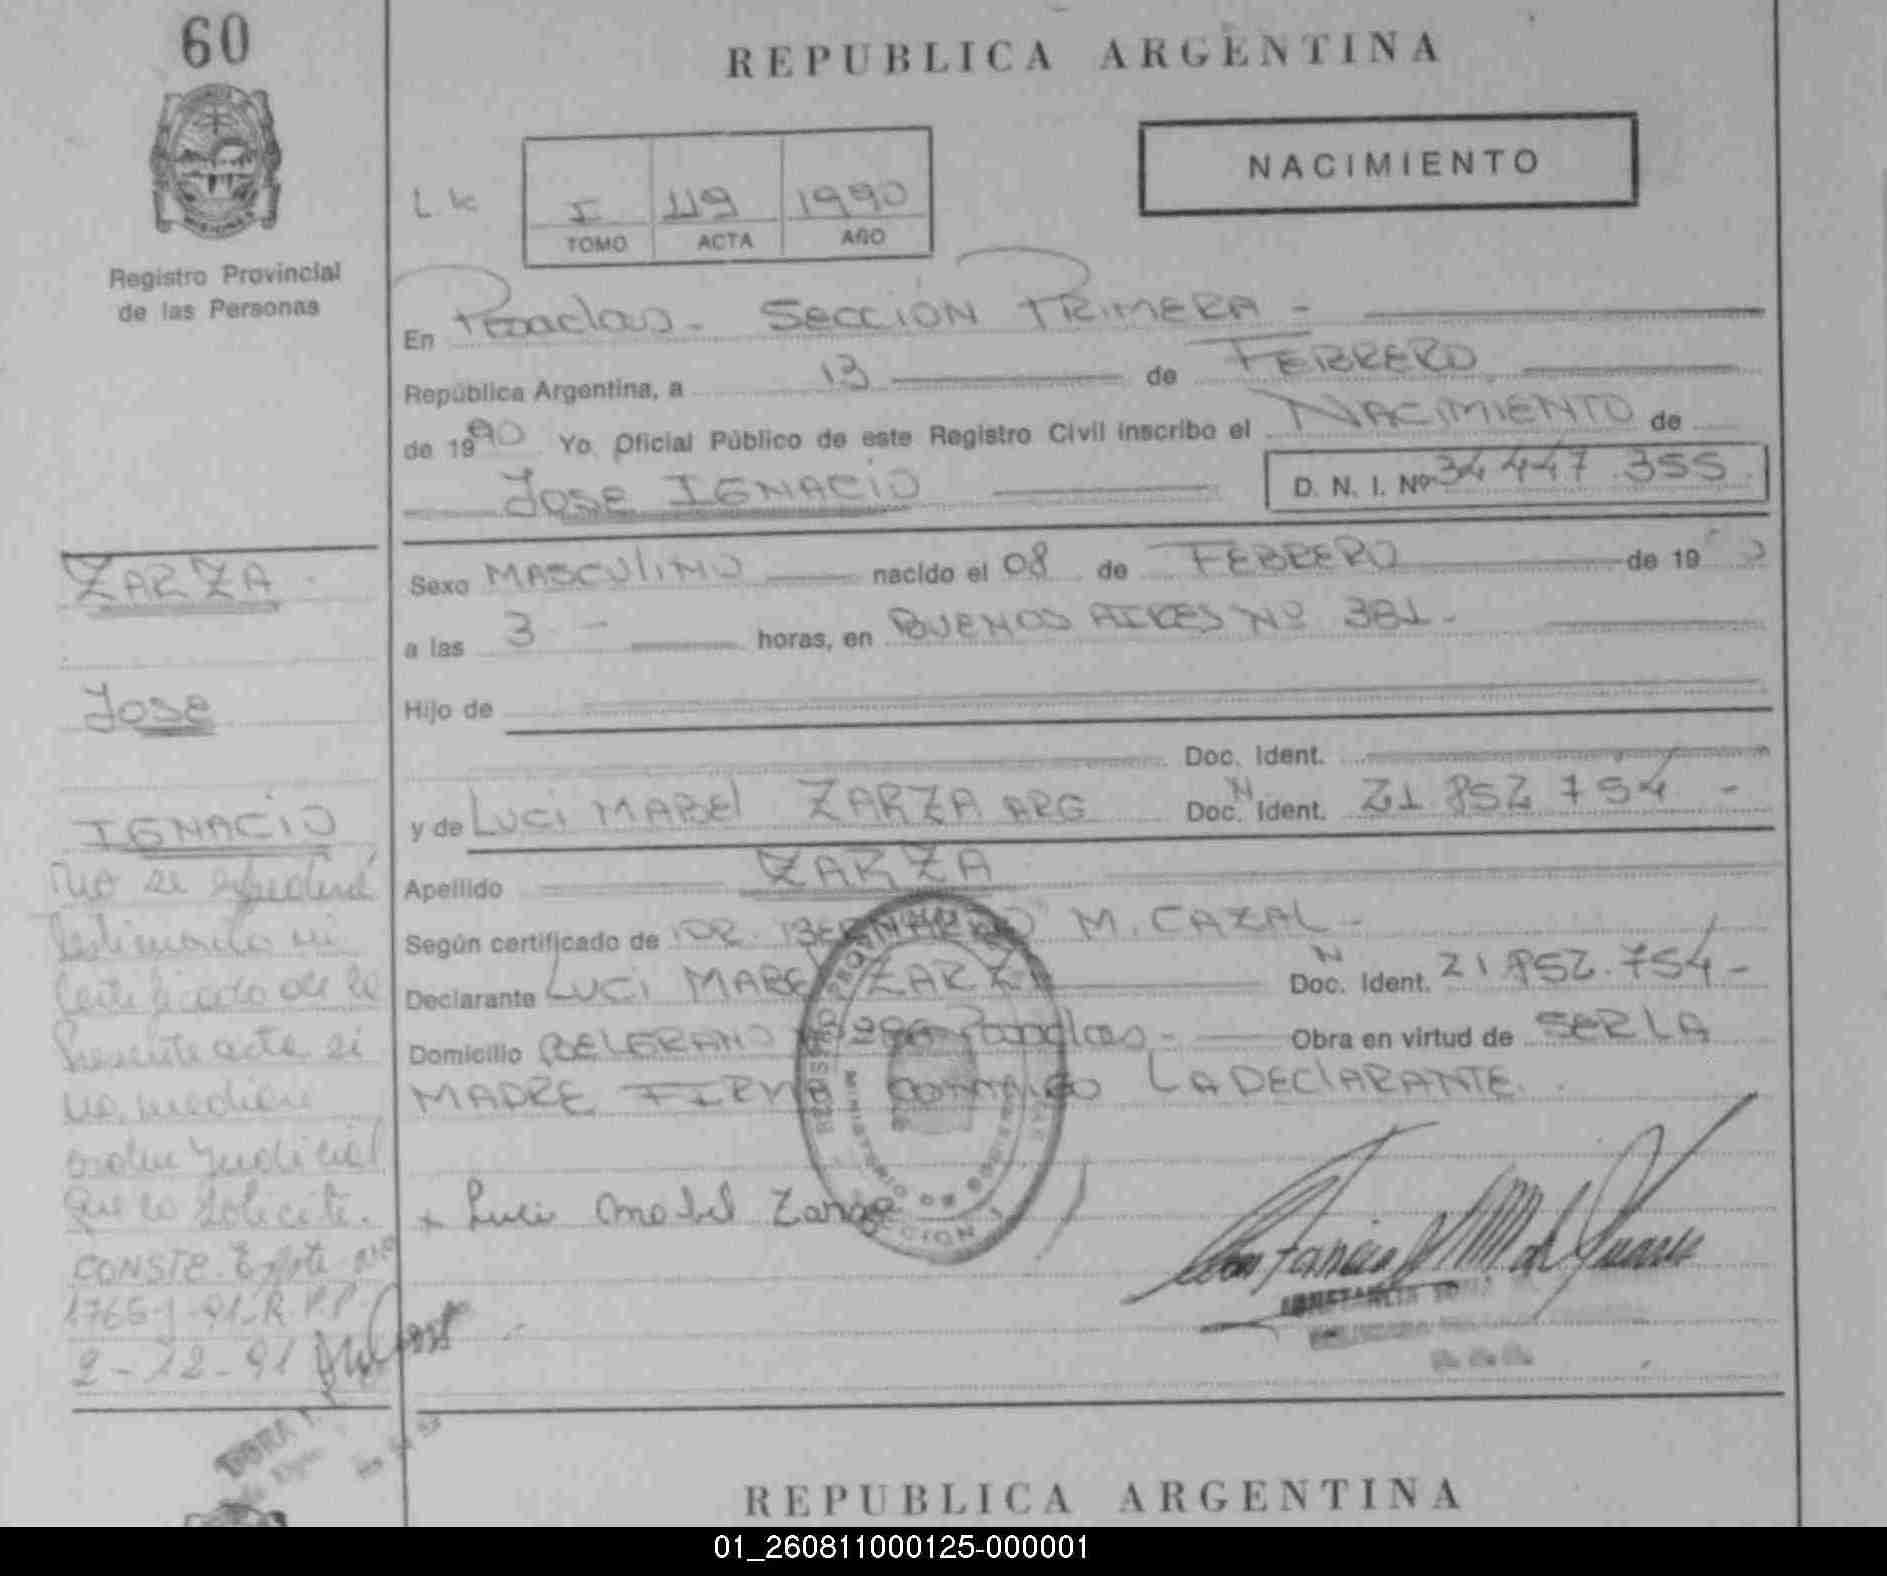 60
REPUBLICA ARGENTINA
NACIMIENTO
I 119 1990
TOMO ACTA AÑO
Registro Provincial
de las Personas
En Posadas - SECCIÓN PRIMERA -
República Argentina, a 13 de FEBRERO
de 1990 Yo, Oficial Público de este Registro Civil inscribo el NACIMIENTO de
JOSE IGNACIO D. N. I. Nº 34 447.355
ZARZA
JOSE
IGNACIO
Sexo MASCULINO nacido el 08 de FEBRERO de 19
a las 3 - horas, en BUENOS AIRES Nº 381 -
Hijo de
Doc. Ident.
y de LUCI MABEL ZARZA ARG Doc. Ident. N 21 852 754 -
Apellido ZARZA
Según certificado de DR. BERNARDO M. CAZAL -
Declarante LUCI MABEL ZARZA Doc. Ident. N 21 852.754 -
Domicilio BELGRANO Posadas - Obra en virtud de SER LA
MADRE FIRMA CONMIGO LA DECLARANTE.
x Luci Mabel Zarza
No se expedirá
testimonio ni
certificado de la
presente acta si
no mediare
orden judicial
que lo solicite.
CONSTE. Expte
1765-J-91-R.P.P.
2-12-91
MINISTERIO DE GOBIERNO
SECCION 1
DORA
REPUBLICA ARGENTINA
01_260811000125-000001